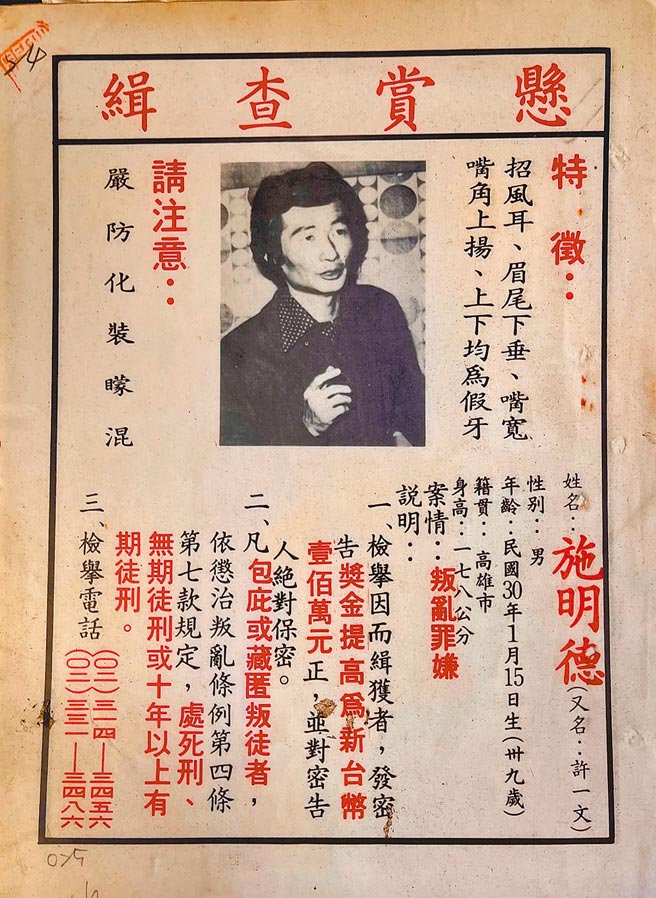 懸賞查緝
特徵：
招風耳、眉尾下垂、嘴寬
嘴角上揚、上下均為假牙
請注意：
嚴防化裝矇混
姓名：施明德（又名：許一文）
性別：男
年齡：民國30年1月15日生（卅九歲）
籍貫：高雄市
身高：一七八公分
案情：叛亂罪嫌
說明：
一、檢舉因而緝獲者，發密
告獎金提高為新台幣
壹佰萬元正，並對密告
人絕對保密。
二、凡包庇或藏匿叛徒者，
依懲治叛亂條例第四條
第七款規定，處死刑、
無期徒刑或十年以上有
期徒刑。
三、檢舉電話（〇二）三一四—三四五六
（〇二）三三一—三四八六
075